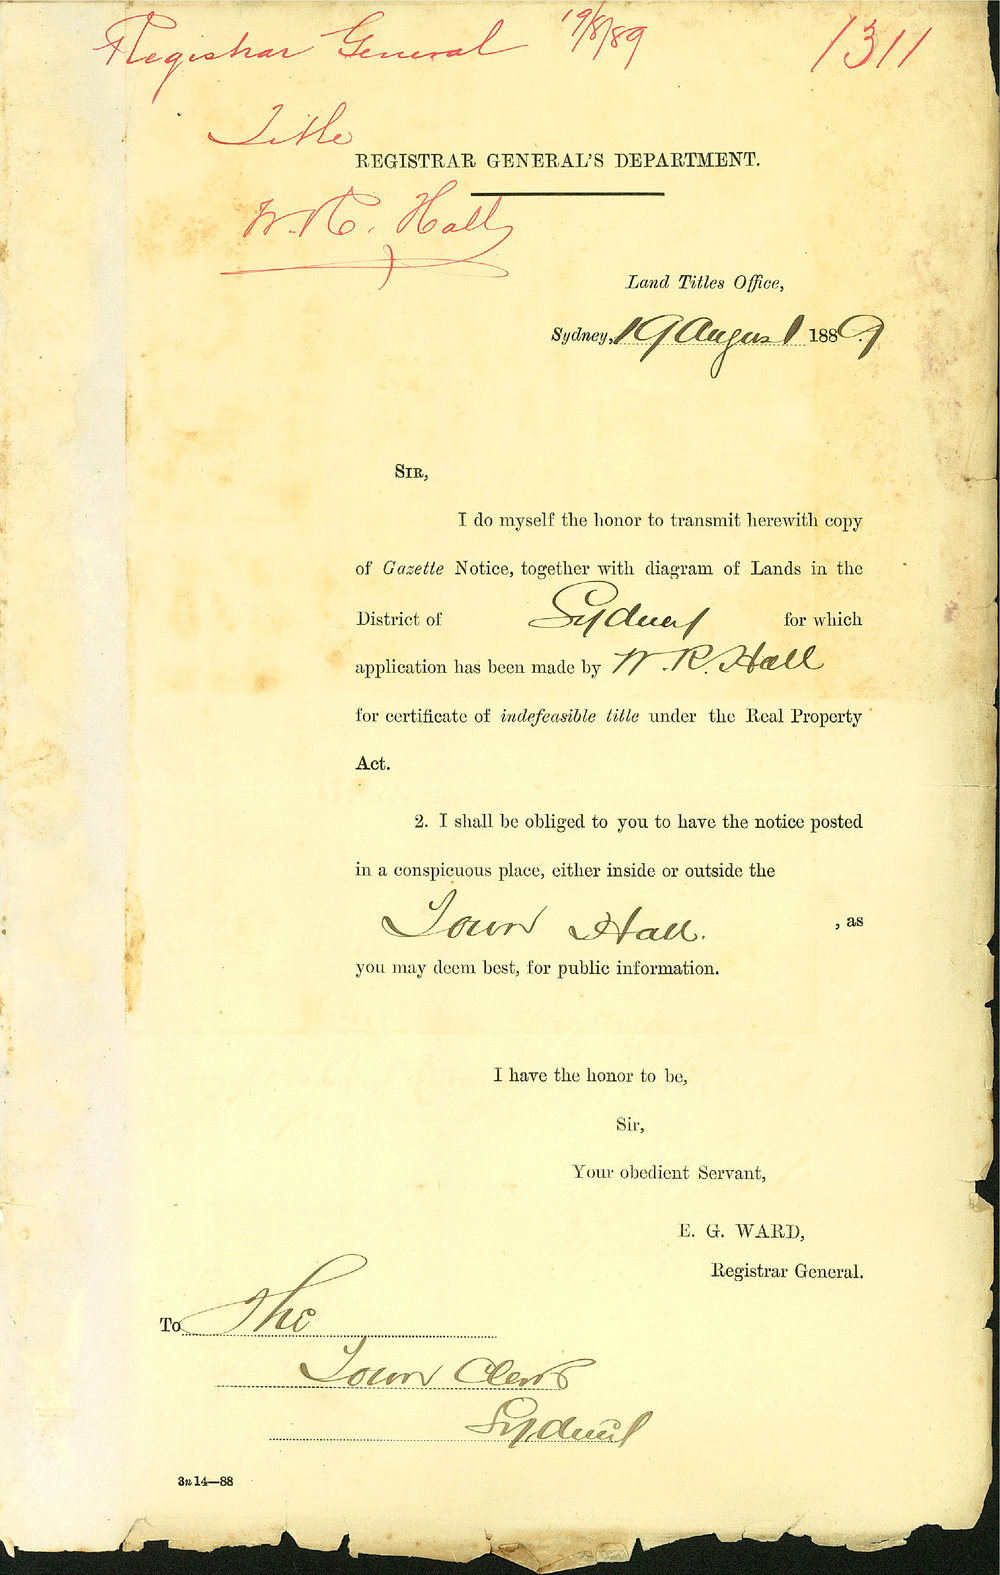 Registrar General 19/8/89 1311
Title
REGISTRAR GENERAL'S DEPARTMENT.
W. R. Hall
Land Titles Office,
Sydney, 19 August 1889.
SIR,
I do myself the honor to transmit herewith copy
of Gazette Notice, together with diagram of Lands in the
District of Sydney for which
application has been made by W. R. Hall
for certificate of indefeasible title under the Real Property
Act.
2. I shall be obliged to you to have the notice posted
in a conspicuous place, either inside or outside the
Town Hall. , as
you may deem best, for public information.
I have the honor to be,
Sir,
Your obedient Servant,
E. G. WARD,
Registrar General.
To The
Town Clerk
Sydney
3n 14—88